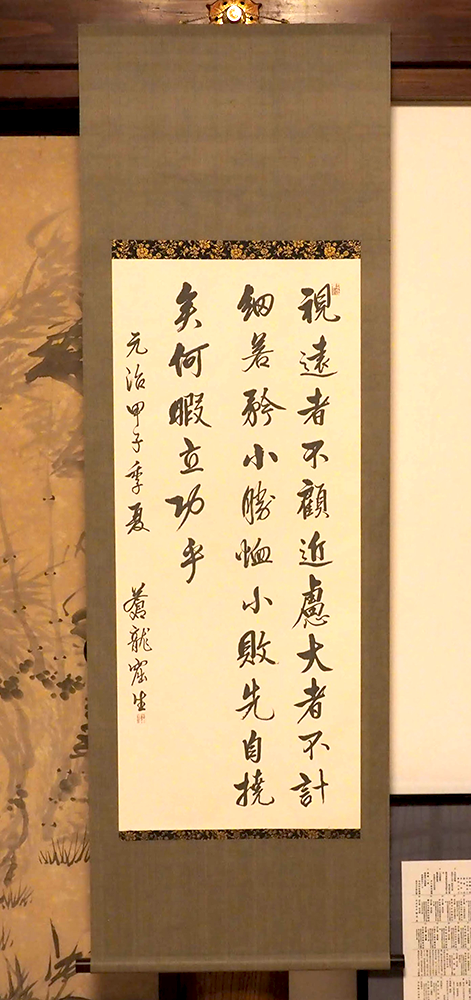 視遠者不顧近慮大者不計
細若矜小勝恤小敗先自撓
矣何暇立功乎
元治甲子季夏 蒼龍窟生